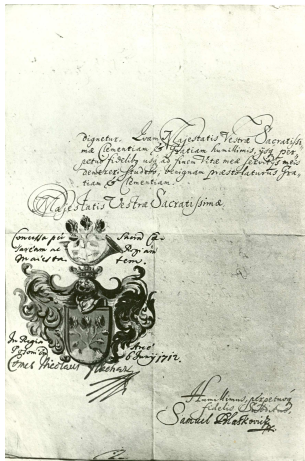 dignetur. Quam Majestatis Vestræ Sacratissi
mæ Clementiam, & Gratiam humillimis, usq; per
petuo fidelibus usq; ad finem vitæ meæ servitijs meis
demereri studebo, benignam præstolaturus gra,
tiam & Clementiam.
Majestatis Vestræ Sacratissimæ
Concessa per Sacram Cæ
saream ac Regiam
Maiesta tem.
In Regia
Poson
Comes Nicolaus
1712.
Humillimus, perpetuoq
fidelis Subditus
Samuel Plaskovitz